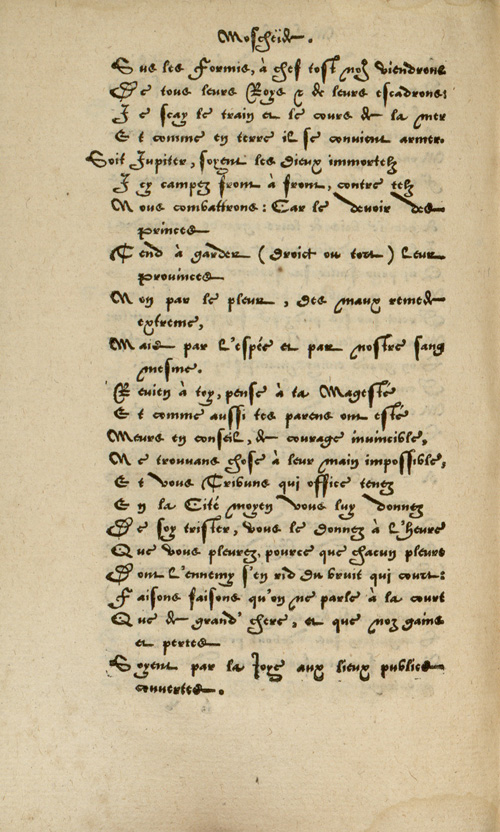 Moscheïde.
Sus les Formis, à chef tost noz viendrons
De tous leurs Roys & de leurs escadrons:
Je scay le train et le cours de la mer
Et comme en terre il se convient armer.
Soit Jupiter, soyent les dieux immortelz
Icy campez front à front, contre telz
Nous combattrons: Car le devoir des
princes
Tend à garder (droict ou tort) leur
provinces
Non par le pleur, des maux remede
extreme,
Mais par l'espée et par nostre sang
mesme.
Revien à toy, pense à ta Magesté
Et comme aussi tes parens ont esté
Meurs en conseil, de courage invincible,
Ne trouvans chose à leur main impossible,
Et vous Tribuns qui office tenez
En la Cité moyen vous luy donnez
De soy trister, vous le donnez à l'heure
Que vous pleurez, pource que chacun pleure
Dont l'ennemy s'en rid du bruit qui court:
Faisons faisons qu'on ne parle à la court
Que de grand' chere, et que noz gains
et pertes
Soyent par la Joye aux lieux publics
couvertes.